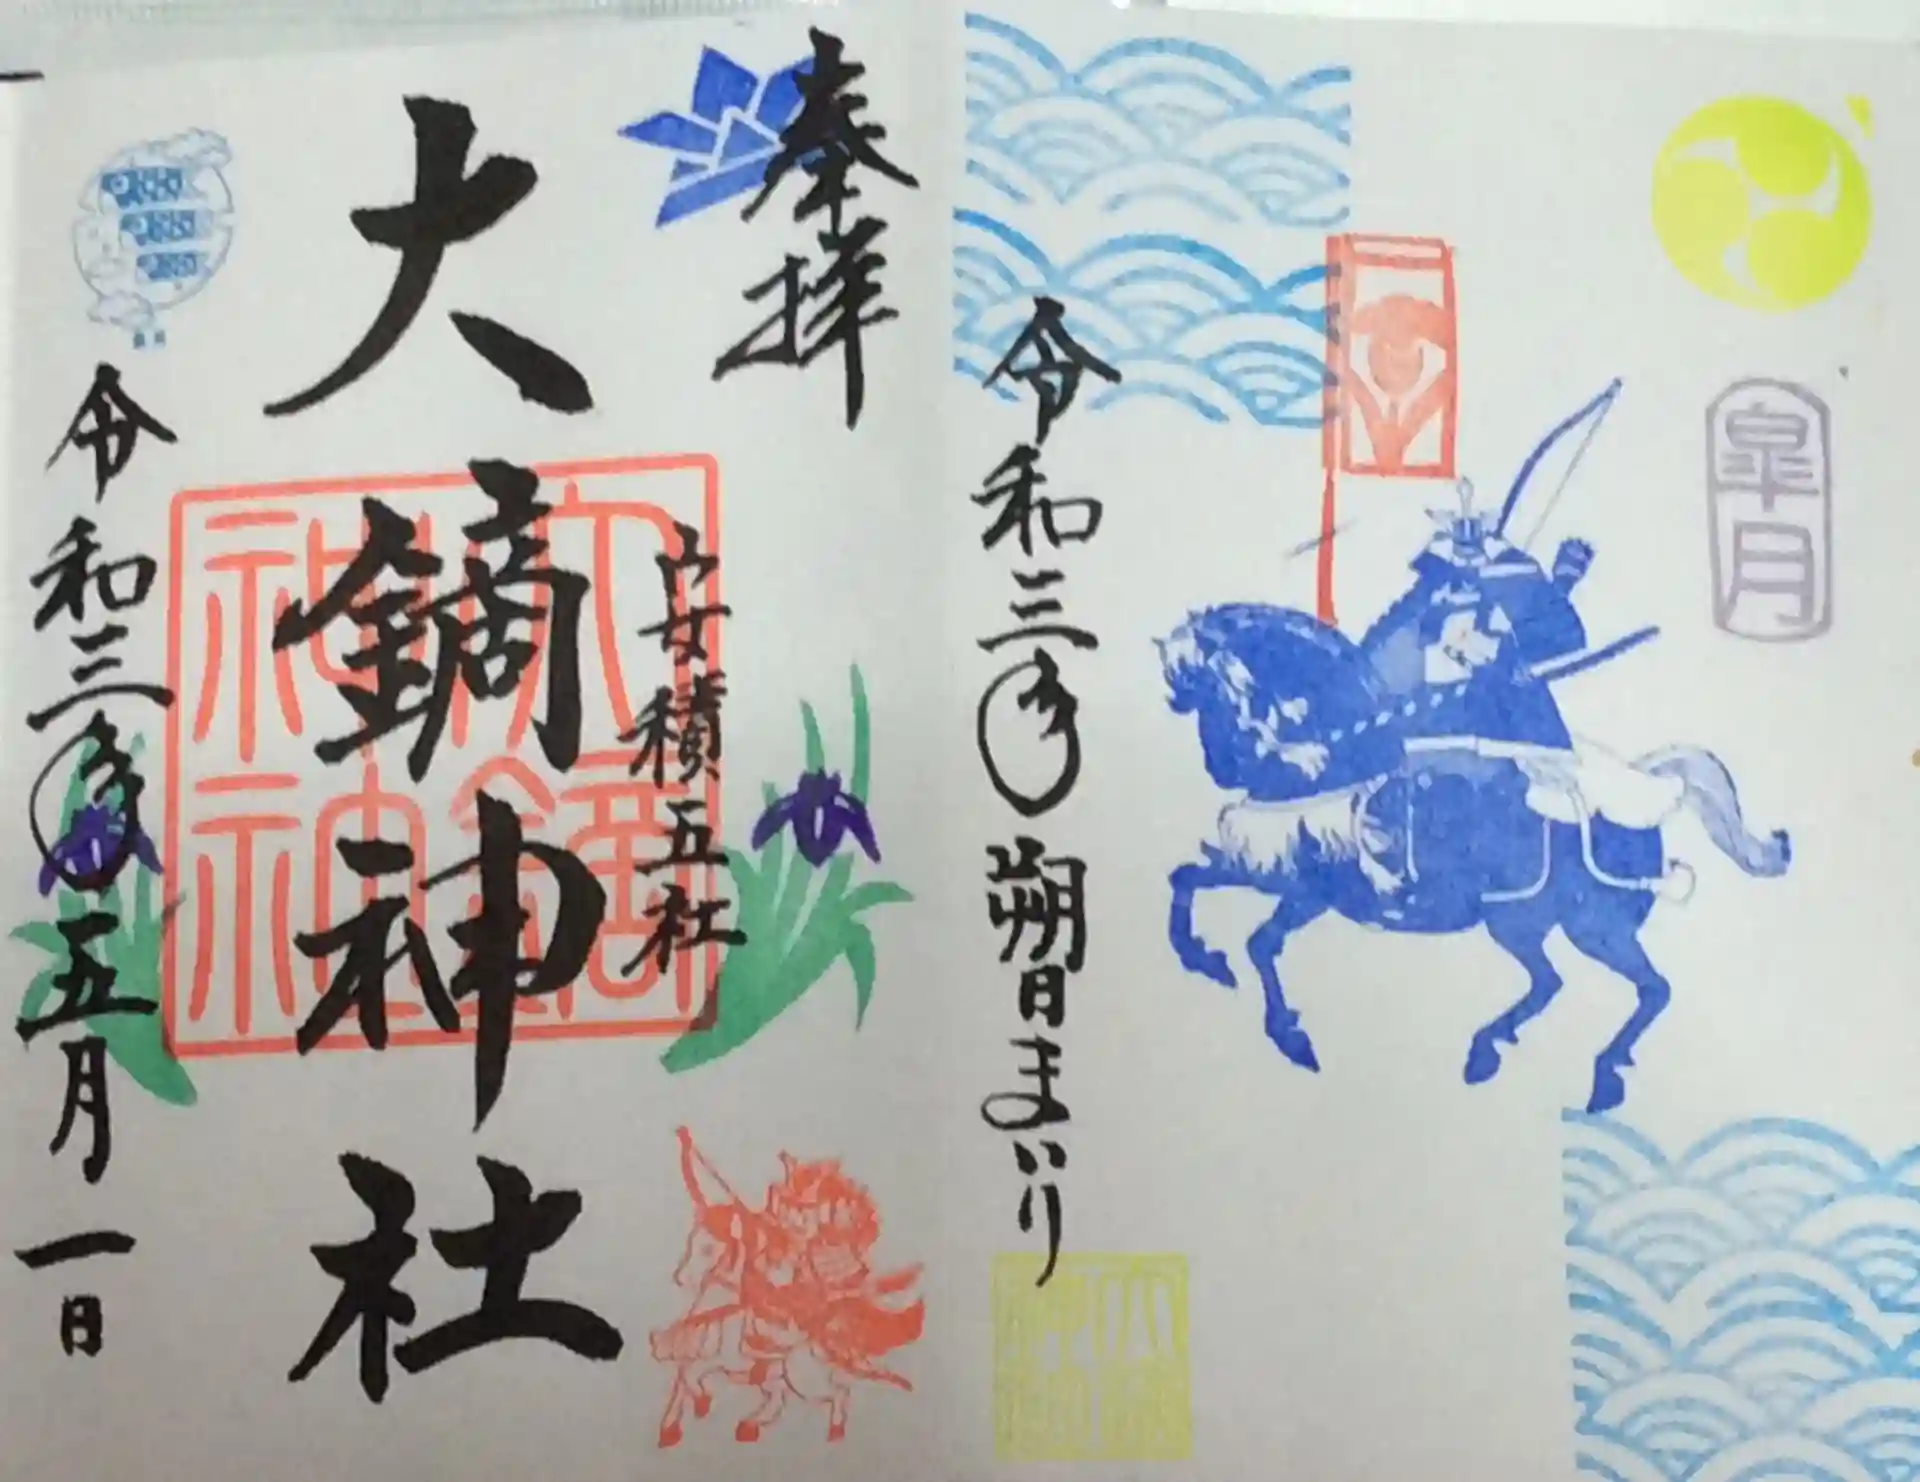 皐月
令和三年朔日まいり
奉拝
安積五社
大鏑神社
令和三年五月一日
大鏑神社